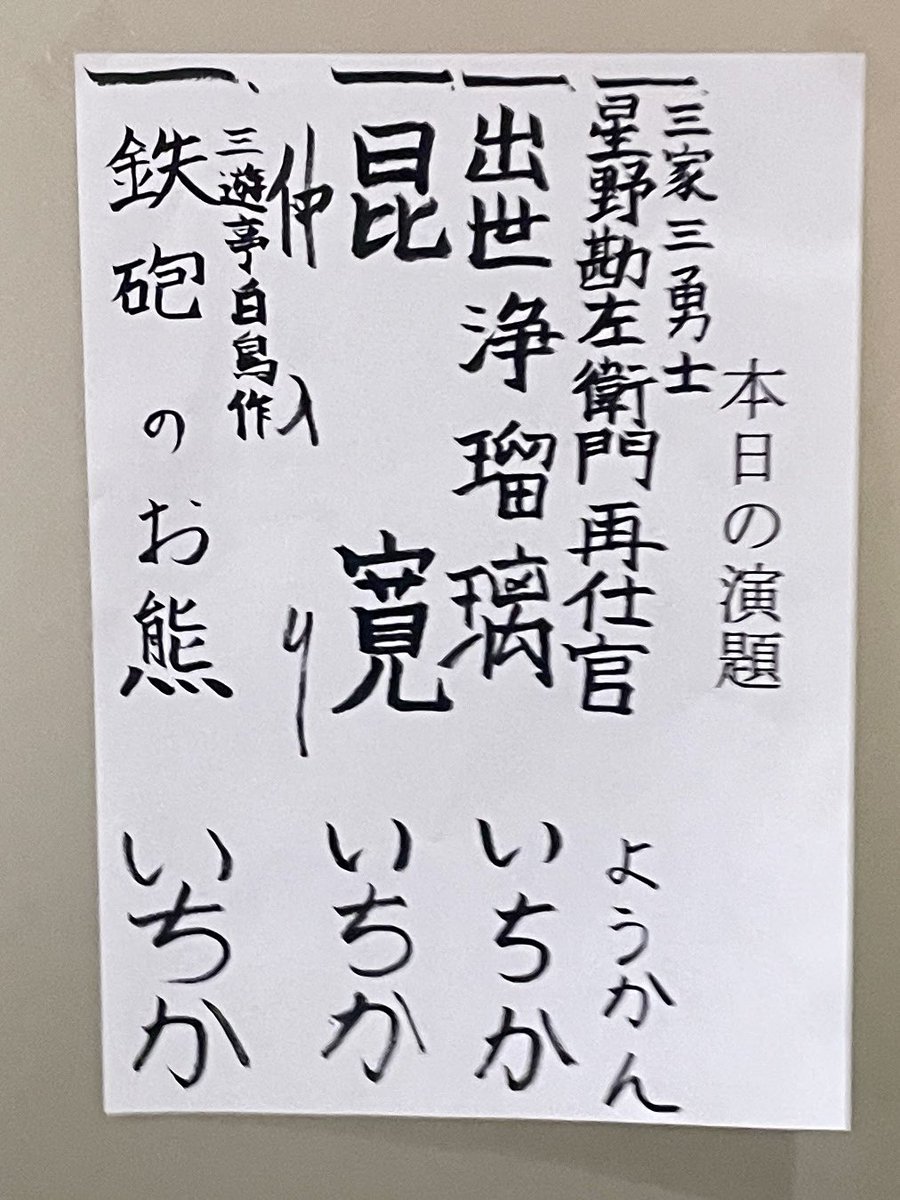 本日の演題
三家三勇士
一 星野勘左衛門再仕官 ようかん
一 出世浄瑠璃 いちか
一 昆寛 いちか
仲入り
三遊亭白鳥作
一、鉄砲のお熊 いちか